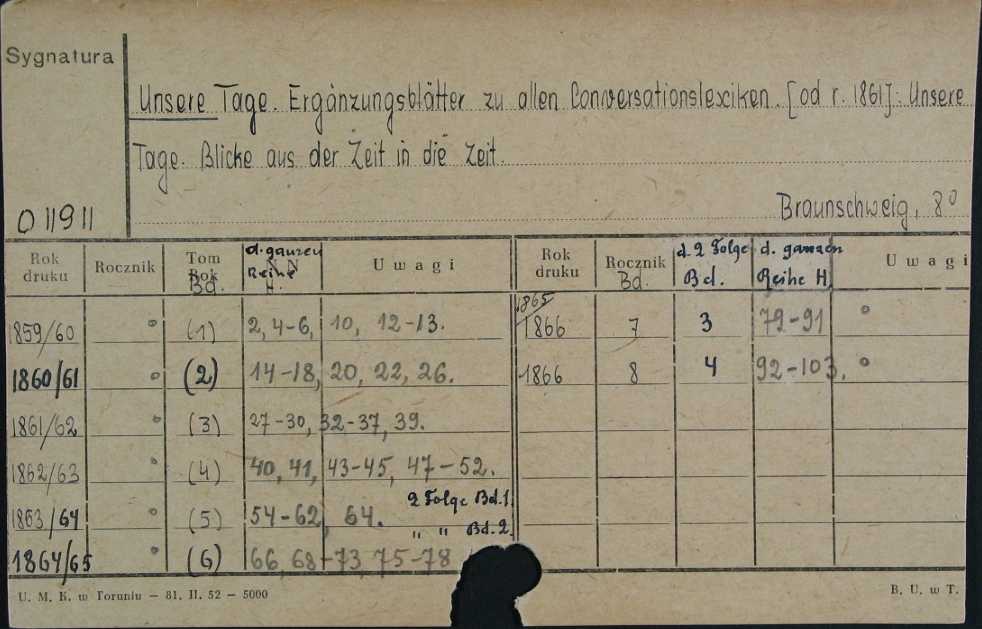 Sygnatura
Unsere Tage. Ergänzungsblätter zu allen Conversationslexiken. [od r. 1861]: Unsere
Tage. Blicke aus der Zeit in die Zeit.
Braunschweig, 8°
011911
Rok druku Rocznik Tom Rok Bd. d. ganzen Reihe H. Uwagi Rok druku Rocznik Bd. d. 2 Folge Bd. d. ganzen Reihe H. Uwagi
1859/60 (1) 2, 4-6, 10, 12-13. 1865/1866 7 3 79-91
1860/61 (2) 14-18, 20, 22, 26. 1866 8 4 92-103.
1861/62 (3) 27-30, 32-37, 39.
1862/63 (4) 40, 41, 43-45, 47-52.
2 Folge Bd. 1.
1863/64 (5) 54-62, 64.
" " Bd. 2.
1864/65 (6) 66, 68-73, 75-78
U. M. K. w Toruniu — 81. II. 52 — 5000
B. U. w T.